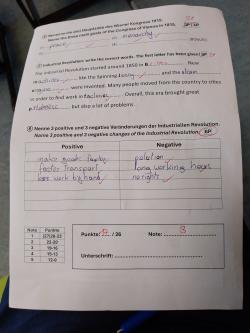 Nenne drei Hauptziele des Wiener Kongress 1815.
Name the three main goals of the Congress of Vienna in 1815.
peace monarchy
Industrial Revolution: write the correct words. The first letter has been given!
The Industrial Revolution started around 1850 in B New
machines like the Spinning Jenny and the steam
engine were invented. Many people moved from the country to cities
in order to find work in factories. Overall, this era brought great
but also a lot of problems.
Nenne 3 positive und 3 negative Veränderungen der Industriellen Revolution.
Name 3 positive and 3 negative changes of the Industrial Revolution. 6P
Positive Negative
make goods faster polution
faster Transport long working hours
less work by hand no rights
Note Punkte
1 28-23
2 22-20
3 19-16
4 15-13
5 12-0
Punkte: / 26 Note: 3
Unterschrift: